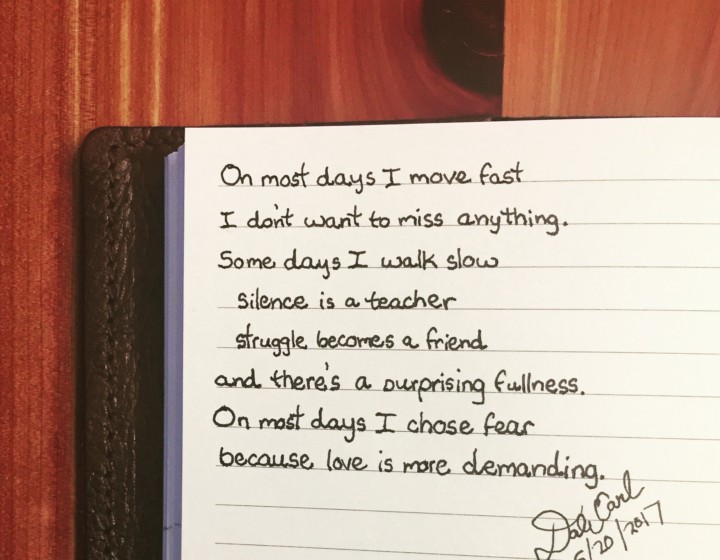 On most days I move fast
I don't want to miss anything.
Some days I walk slow
silence is a teacher
struggle becomes a friend
and there's a surprising fullness.
On most days I chose fear
because love is more demanding.
Carl
/20/2017